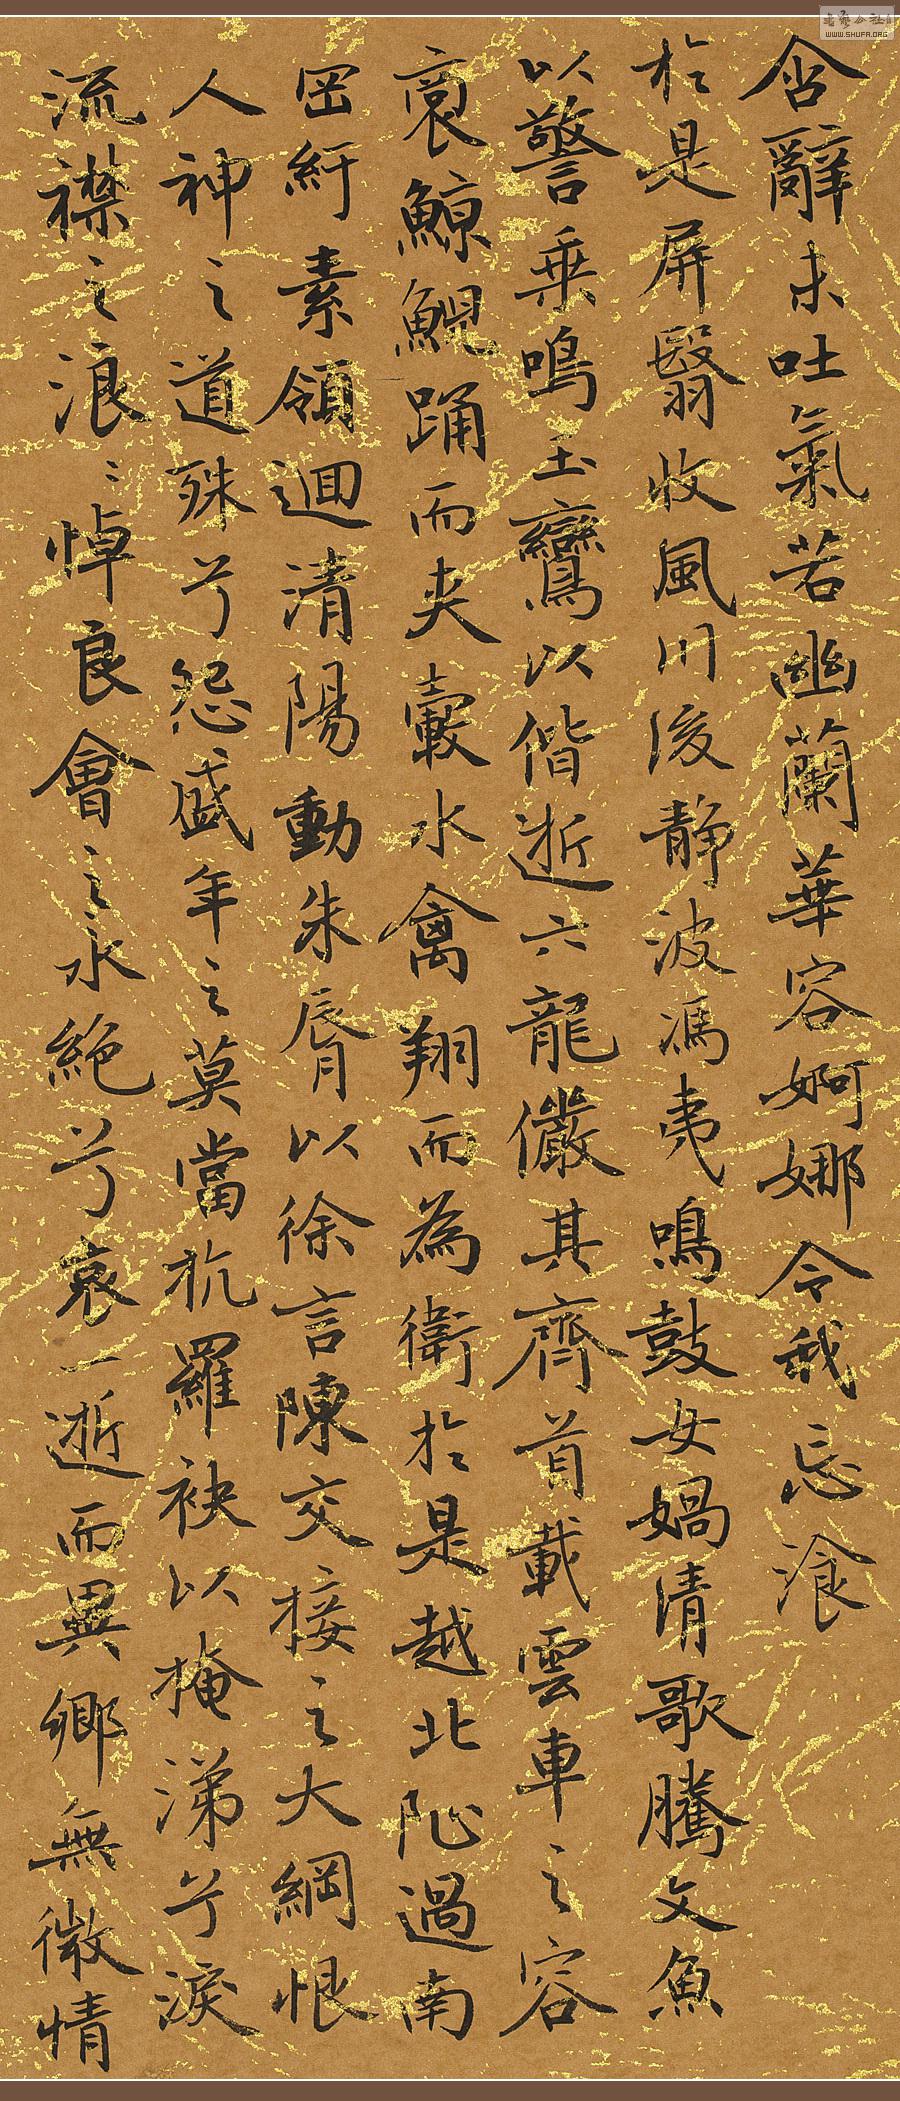 含辭未吐氣若幽蘭華容婀娜令我忘飡
於是屏翳收風川後靜波馮夷鳴鼓女媧清歌騰文魚
以警乗鳴玉鸞以偕逝六龍儼其齊首載雲車之容
裔鯨鯢踊而夾轂水禽翔而為衛於是越北沚過南
岡紆素領迴清陽動朱脣以徐言陳交接之大綱恨
人神之道殊兮怨盛年之莫當抗羅袂以掩涕兮淚
流襟之浪〻悼良會之永絕兮哀一逝而異鄉無微情
WWW.SHUFA.ORG